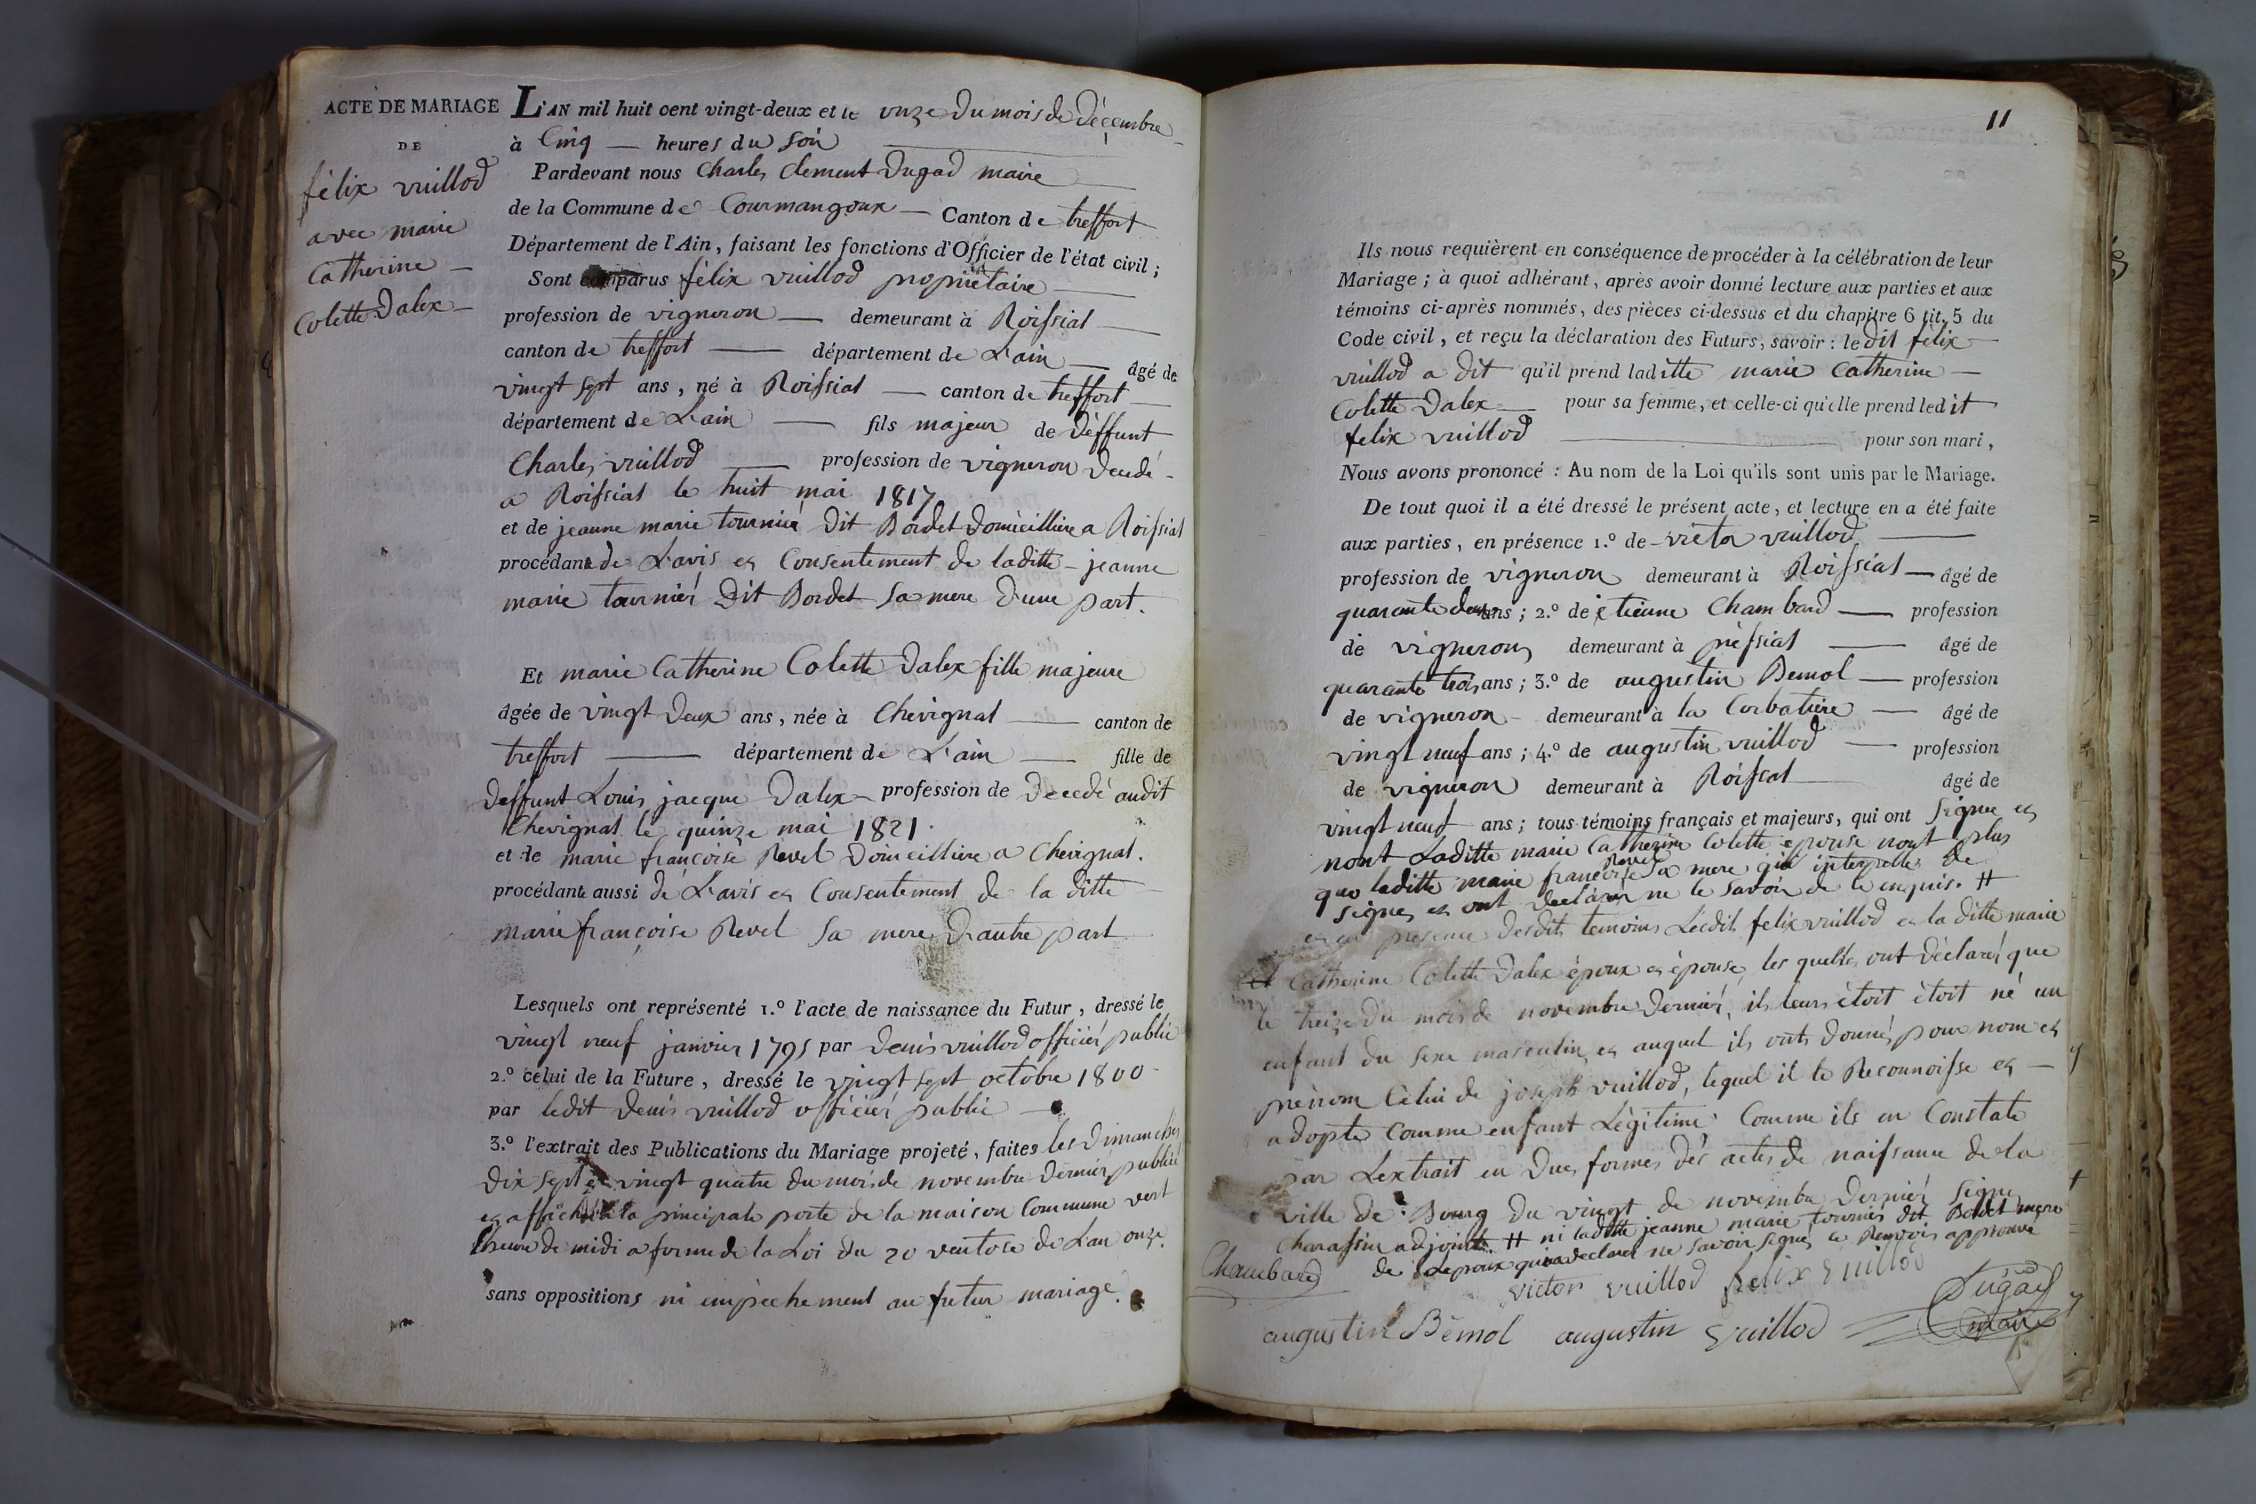 ACTE DE MARIAGE
DE
félix vuillod
avec marie
Catherine
Colette Dalex
L'AN mil huit cent vingt-deux et le onze Du mois de Décembre
à Cinq heures du Soir
Pardevant nous Charles Clement Dugad maire
de la Commune de Courmangoux Canton de treffort
Département de l'Ain, faisant les fonctions d'Officier de l'état civil;
Sont comparus félix vuillod propriétaire
profession de vigneron demeurant à Roissiat
canton de treffort département de L'ain âgé de
vingt sept ans, né à Roissiat canton de treffort
département de L'ain fils majeur de Déffunt
Charles vuillod profession de vigneron Décedé
a Roissiat le huit mai 1817
et de jeanne marie tournier Dit Bordet Domicilliére a Roissiat
procédant de L'avis et Consentement de laditte jeanne
marie tournier Dit Bordet Sa mere D'une part.
Et marie Catherine Colette Dalex fille majeure
âgée de vingt Deux ans, née à Chevignat canton de
treffort département de L'ain fille de
Deffunt Louis jacque Dalex profession de Decedé audit
Chevignat le quinze mai 1821.
et de marie françoise Revel Domicilliere a Chevignat.
procédante aussi de L'avis et Consentement de la ditte
marie françoise Revel Sa mere D'autre part
Lesquels ont représenté 1.º l'acte de naissance du Futur, dressé le
vingt neuf janvier 1795 par Denis vuillod officiér public
2.º celui de la Future, dressé le vingt sept octobre 1800
par ledit Denis vuillod officiér public
3.º l'extrait des Publications du Mariage projeté, faites les Dimanches
Dix sept et vingt quatre du mois de novembre Dernier, publié
et affiché à la principale porte de la maison Commune vert
l'heure de midi a forme de la Loi du 20 ventose de L'an onze.
sans oppositions ni empêchement au futur mariage.
11
Ils nous requièrent en conséquence de procéder à la célébration de leur
Mariage; à quoi adhérant, après avoir donné lecture aux parties et aux
témoins ci-après nommés, des pièces ci-dessus et du chapitre 6 tit. 5 du
Code civil, et reçu la déclaration des Futurs, savoir: le dit félix
vuillod a dit qu'il prend laditte marie Catherine
Colette Dalex pour sa femme, et celle-ci qu'elle prend ledit
felix vuillod pour son mari,
Nous avons prononcé: Au nom de la Loi qu'ils sont unis par le Mariage.
De tout quoi il a été dressé le présent acte, et lecture en a été faite
aux parties, en présence 1.º de victor vuillod
profession de vigneron demeurant à Roissiat âgé de
quarante deux ans; 2.º de étienne Chambard profession
de vigneron demeurant à préssiat âgé de
quarante trois ans; 3.º de augustin Bemol profession
de vigneron demeurant à la Corbatiére âgé de
vingt neuf ans; 4.º de augustin vuillod profession
de vigneron demeurant à Roissat âgé de
vingt neuf ans; tous témoins français et majeurs, qui ont Signé et
nont Laditte marie Catherine Colette epouse nont plus
que laditte marie françoise Revel Sa mere qui interpellés de
signer et ont declarér ne le savoir de ce enquis. #
et en presence Desdits temoins Lesdit felix vuillod et la ditte marie
Catherine Colette Dalex époux et épouse, les quelles ont Déclaré que
le treize du mois de novembre Dernier, ils leurs étoit étoit né un
enfant du sexe masculin et auquel ils onts donnés pour nom et
prénom Celui de joseph vuillod, lequel il le Reconnoisse et
adopte Comme enfant Légitime Comme ils en Constate
par L'extrait en Dues formes Dés actes de naissance de la
ville de Bourg Du vingt de novembre Derniér Signé
Charassin adjoint. # ni laditte jeanne marie tournier dit Bordet mere
de L'epoux qui a declaré ne savoir signer ce Renvoir approuvé
Chambard
victor vuillod felix vuillod
Dugad
maire
augustin Bémol augustin vuillod